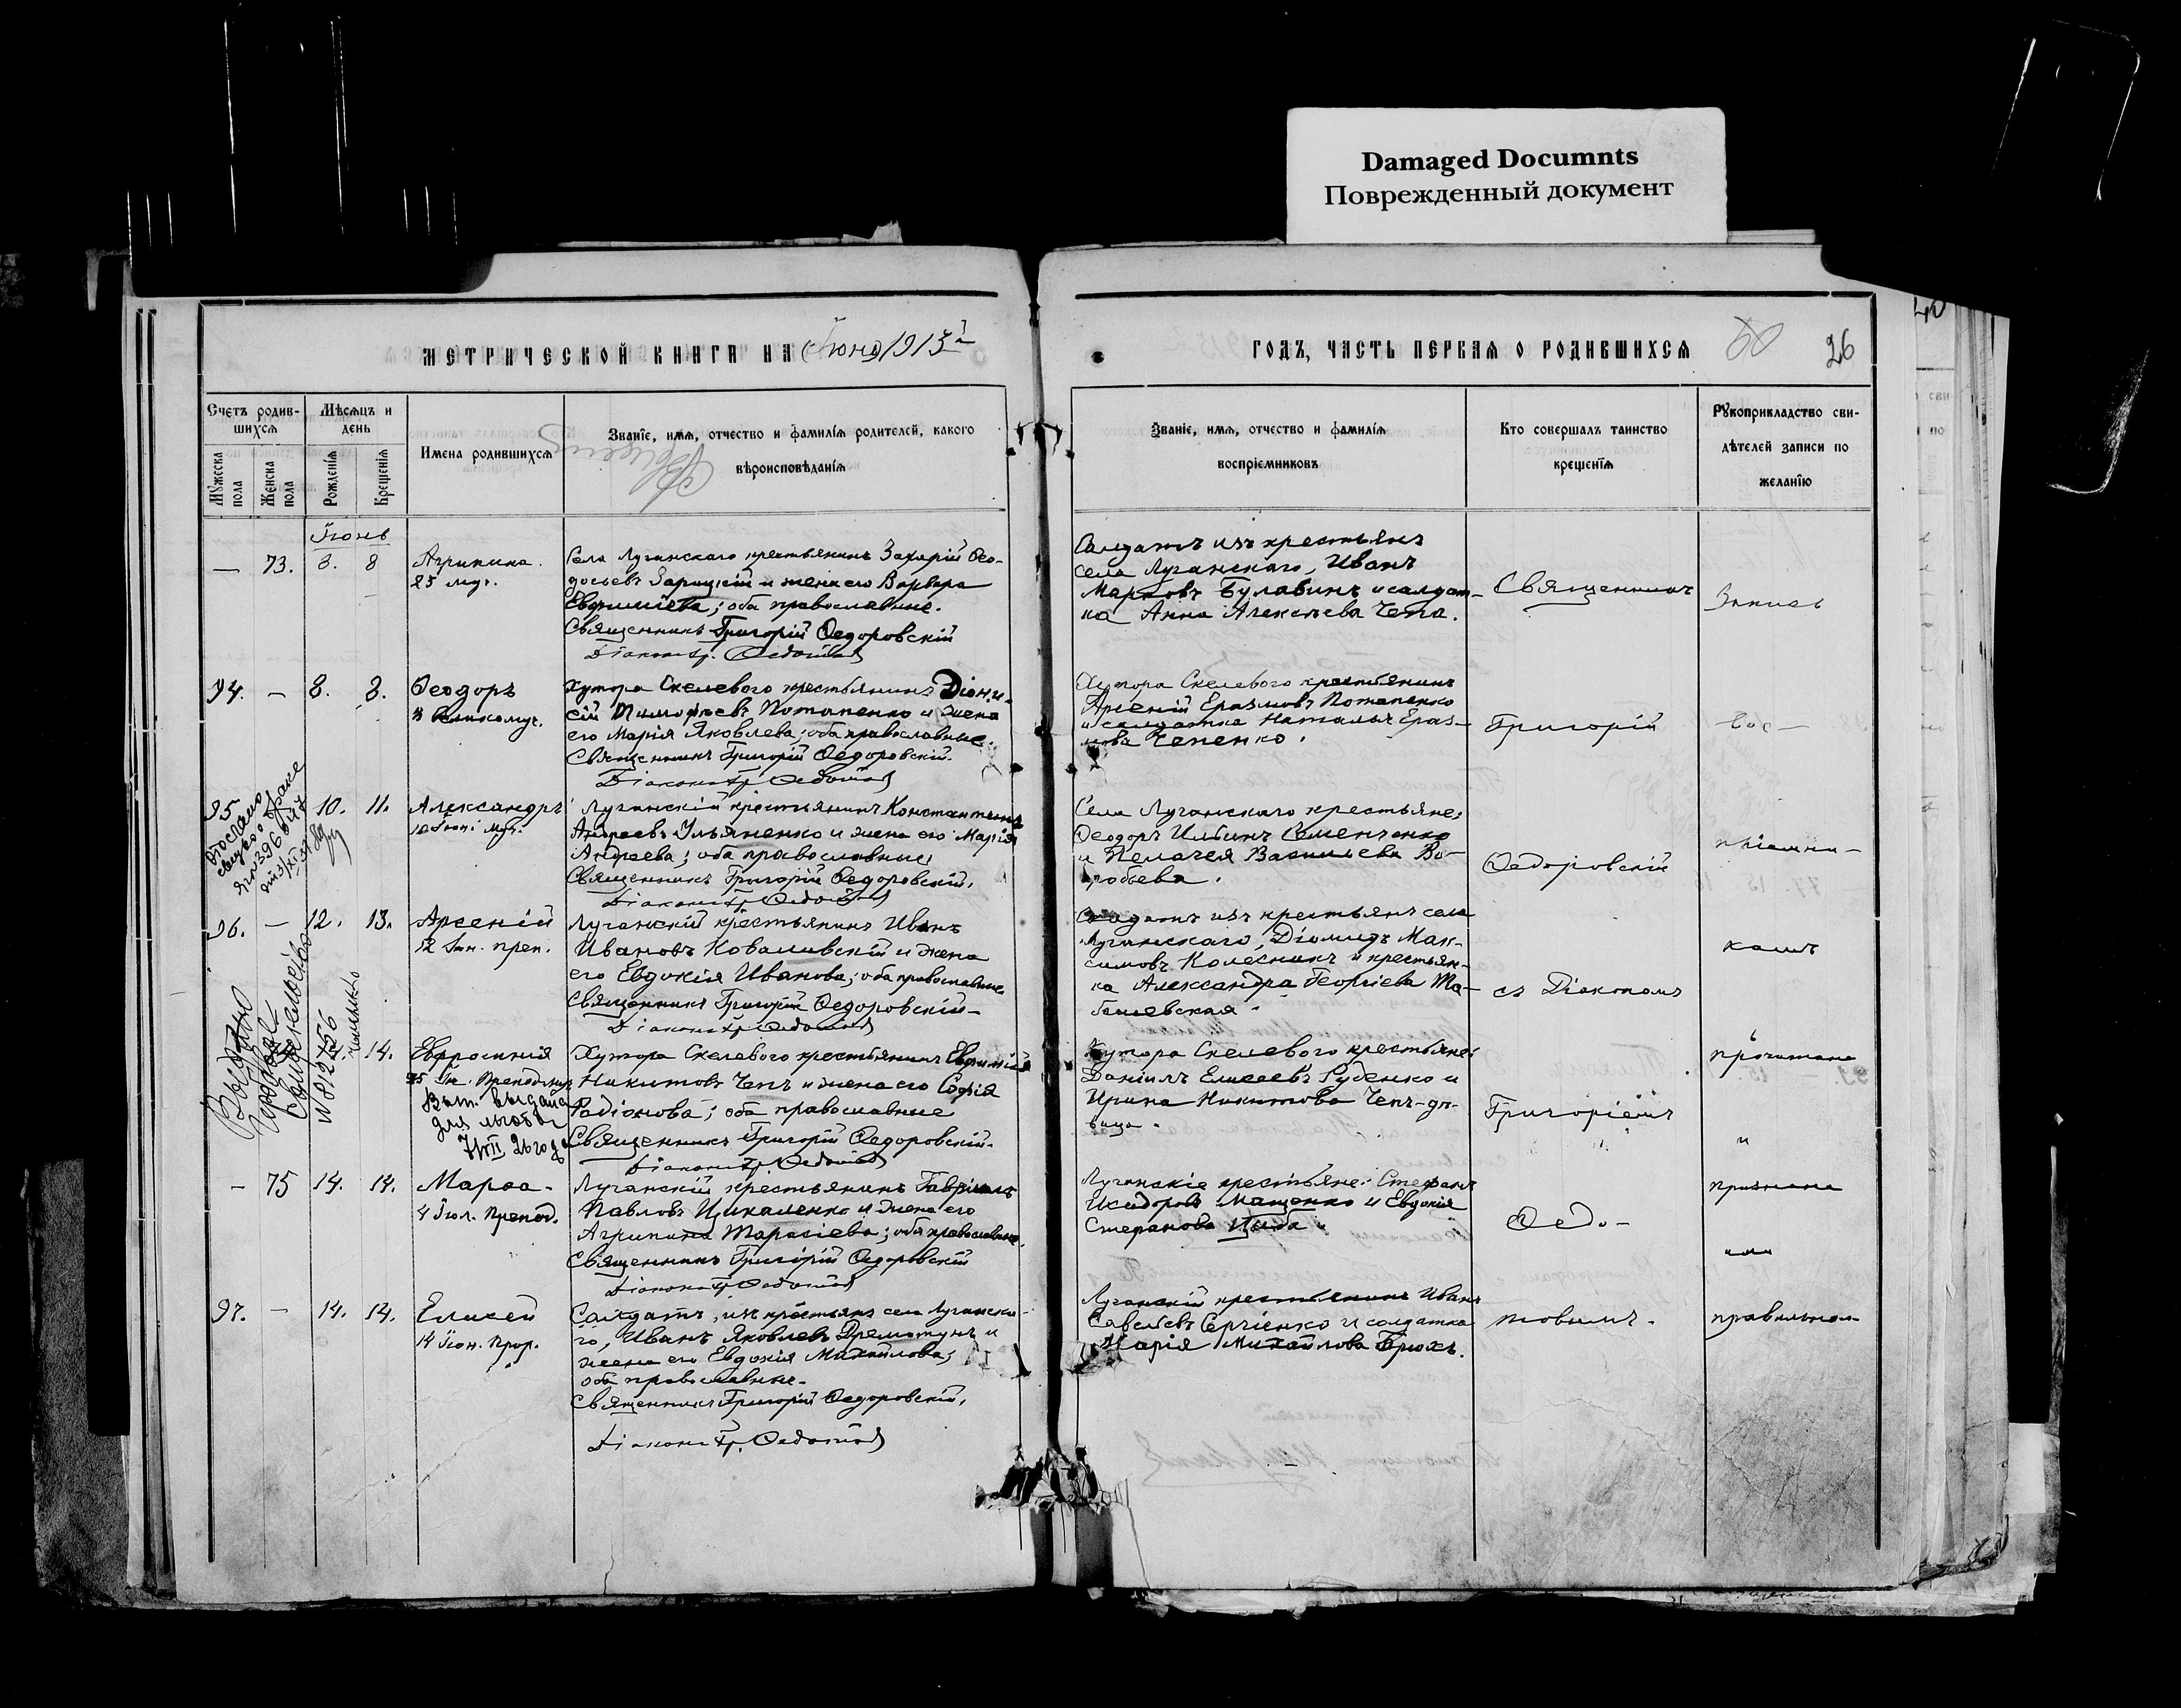 Damaged Documnts
Поврежденный документ
МЕТРИЧЕСКОЙ КНИГИ НА Іюнь 1913 г
ГОДЪ, ЧАСТЬ ПЕРВАЯ О РОДИВШИХСЯ
26
Счетъ родив-
шихся
Мужеска
пола
Женска
пола
Мѣсяцъ и
день
Рожденія
Крещенія
Имена родившихся
Званіе, имя, отчество и фамилія родителей, какого
вѣроисповѣданія
Званіе, имя, отчество и фамилія
воспріемниковъ
Кто совершалъ таинство
крещенія
Рукоприкладство сви-
дѣтелей записи по
желанію
Іюнь
— 73. 8. 8
Агрипина.
Села Луганскаго крестьянинъ Захарій Ѳео-
досьевъ Зарицкій и жена его Варвара
Евфиміева; оба православные.
Священникъ Григорій Ѳедоровскій
Діаконъ Гр. Ѳедотов
Солдатъ изъ крестьянъ
села Луганскаго, Иванъ
Марковъ Булавинъ и солдат-
ка Анна Алексѣева Чепа.
Священникъ
Запись
94. — 8. 8.
Ѳеодоръ
8 великомуч.
Хутора Скелевого крестьянинъ Діони-
сій Тимоѳеевъ Потапенко и жена
его Марія Яковлева; оба православные.
Священникъ Григорій Ѳедоровскій.
Діаконъ Гр. Ѳедотов
Хутора Скелевого крестьянинъ
Арсеній Еразмовъ Потапенко
и солдатка Наталья Ераз-
мова Чепенко.
Григорій
вос—
95 10. 11.
Александръ
10 Іюн. муч.
Луганскій крестьянинъ Константинъ
Андреевъ Ульяненко и жена его Марія
Андреева; оба православные;
Священникъ Григорій Ѳедоровскій.
Діаконъ Гр. Ѳедотов
Села Луганскаго крестьяне:
Ѳеодоръ Ильинъ Семенченко
и Пелагея Васильева Во-
робьева.
Ѳедоровскій
пріемни—
96. — 12. 13.
Арсеній
12 Іюн. преп.
Луганскій крестьянинъ Иванъ
Ивановъ Коваливскій и жена
его Евдокія Иванова; оба православные
Священникъ Григорій Ѳедоровскій—
Діаконъ Гр. Ѳедотов
Солдатъ изъ крестьянъ села
Луганскаго, Діомидъ Мак-
симовъ Колесникъ и крестьян-
ка Александра Георгіева
съ Діакономъ
камъ
14.
Евфросинія
25 Іюн. Преподмуч
Вып. выдана
для
Хутора Скелевого крестьянинъ Евфимій
Никитовъ Чепъ и жена его Софія
Родіонова; оба православные
Священникъ Григорій Ѳедоровскій.
Діаконъ Гр. Ѳедотов
Хутора Скелевого крестьяне:
Даніилъ Елисеевъ Руденко и
Ирина Никитова Чепъ-дѣ-
вица.
Григоріемъ
прочитана
и
— 75 14. 14.
Марѳа.
4 Іюл. Препод.
Луганскій крестьянинъ Гавріилъ
Павловъ Цикаленко и жена его
Агрипина Тарасіева; оба православные.
Священникъ Григорій Ѳедоровскій
Діаконъ Гр. Ѳедотов
Луганскіе крестьяне: Стефанъ
Исидоровъ Мащенко и Евдокія
Стефанова Цыба.
Ѳедо—
признана
97. — 14. 14.
Елисей
14 Іюн. Прор.
Солдатъ, изъ крестьянъ села Луганска-
го, Иванъ Яковлевъ Дремотунъ и
жена его Евдокія Михайлова;
оба православные.
Священникъ Григорій Ѳедоровскій.
Діаконъ Гр. Ѳедотов
Луганскій крестьянинъ Иванъ
Савельевъ Сергіенко и солдатка
Марія Михайлова Брюхъ.
товымъ.
правильною